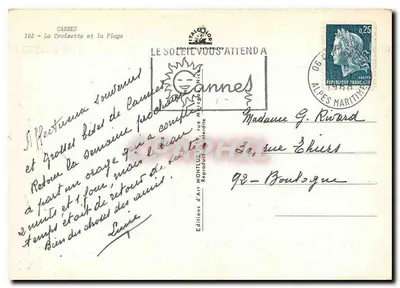 CANNES
102 - La Croisette et la Plage
LE SOLEIL VOUS ATTEND A
Cannes
0,25
REPUBLIQUE FRANCAISE
06
ALPES MARITIMES
Affectueux souvenirs
et Grosses bises de Cannes
Retour la semaine prochaine
à part un orage
2 nuits et 1 jour, mais le beau
temps était de retour de suite
Bien des choses des amis.
Editions d'Art
Reproduction interdite
Madame G. Rivard
30, rue Thiers
92 - Boulogne